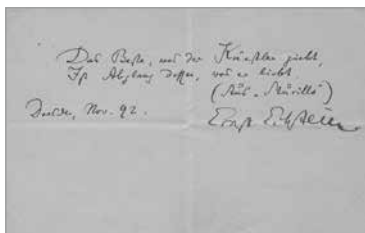 Das Beste, was der Künstler giebt,
Ist Abglanz dessen, was er liebt.
(Aus „Murillo“)
Dresden, Nov. 92.
Ernst Eckstein